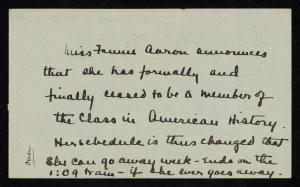 Miss Fannie Aaron announces
that she has formally and
finally ceased to be a member of
the Class in American History.
Her schedule is thus changed that
she can go away week-ends on the
1:09 train - if she ever goes away.